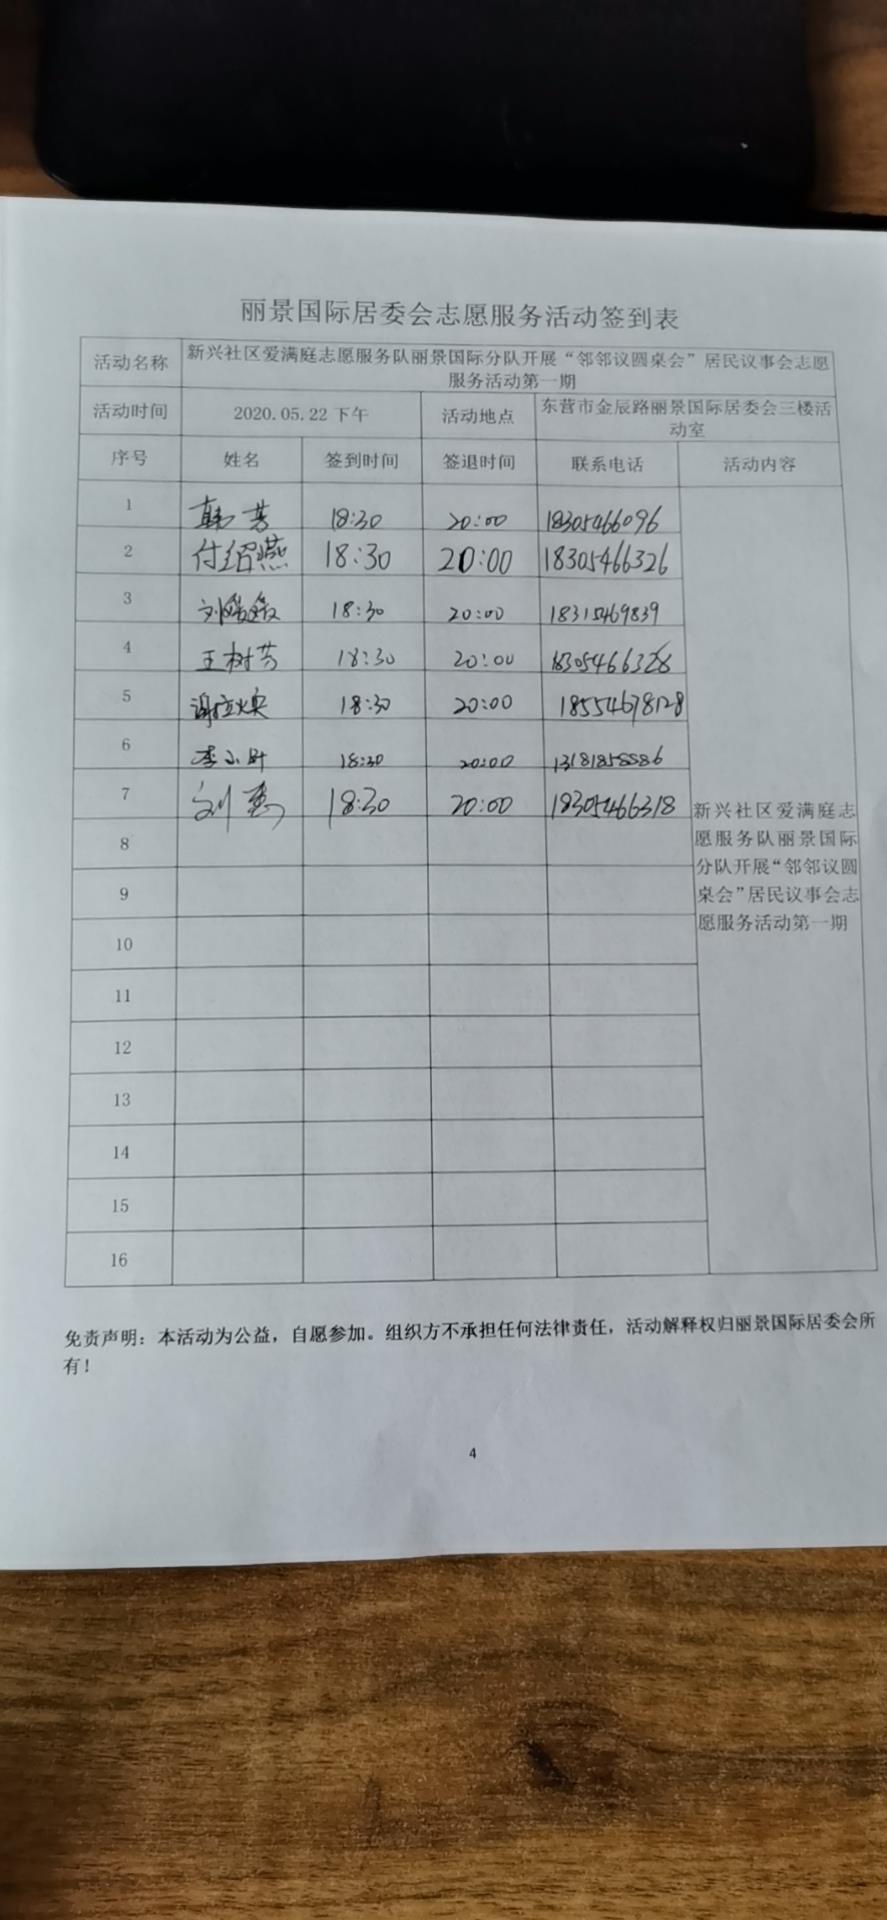 丽景国际居委会志愿服务活动签到表
活动名称 新兴社区爱满庭志愿服务队丽景国际分队开展“邻邻议圆桌会”居民议事会志愿
服务活动第一期
活动时间 2020.05.22下午 活动地点 东营市金辰路丽景国际居委会三楼活
动室
序号 姓名 签到时间 签退时间 联系电话 活动内容
1 韩芳 18:30 20:00 18305466096
2 付绍燕 18:30 20:00 18305466326
3 刘媛媛 18:30 20:00 18315469839
4 王树芳 18:30 20:00 18305466328
5 谢应焕 18:30 20:00 18554678128
6 李小 18:30 20:00 13181858886
7 刘燕 18:30 20:00 18305466318
新兴社区爱满庭志
愿服务队丽景国际
分队开展“邻邻议圆
桌会”居民议事会志
愿服务活动第一期
8
9
10
11
12
13
14
15
16
免责声明：本活动为公益，自愿参加。组织方不承担任何法律责任，活动解释权归丽景国际居委会所
有！
4